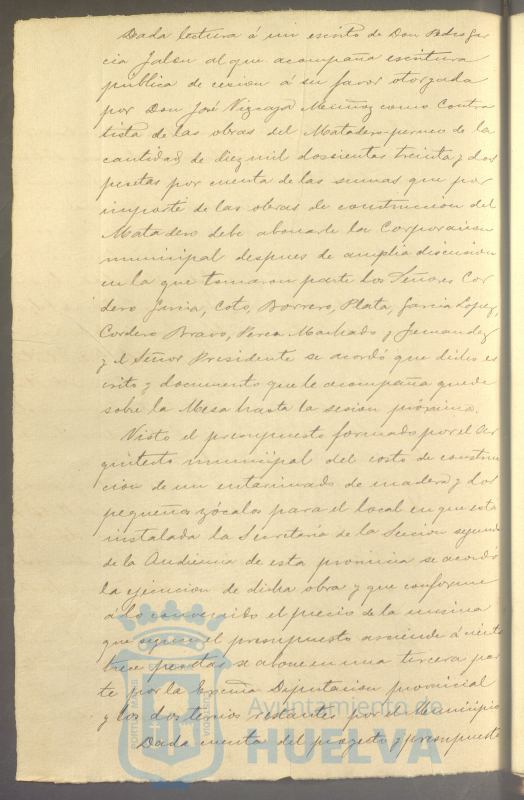 Dada lectura á un escrito de Don Pedro Gar
cia Jalon al que acompaña escritura
pública de cesion á su favor otorgada
por Don José Vizcaya Meuñoz como Contra
tista de las obras del Matadero-perneo de la
cantidad de diez mil dossientas treinta y dos
pesetas por cuenta de las sumas que por
importe de las obras de construccion del
Matadero debe abonarle la Corporacion
municipal despues de amplia discusion
en la que tomaron parte los Señores Cor
dero Garcia, Coto, Borrero, Plata, Garcia Lopez,
Cordero Bravo, Perea Machado y Fernandez
y el Señor Presidente se acordó que dicho es
crito y documento que le acompaña quede
sobre la Mesa hasta la sesion próxima.
Visto el presupuesto formado por el Ar
quitecto municipal del costo de construc
cion de un entarimado de madera y dos
pequeños zócalos para el local en que está
instalada la Secretaría de la Seccion segunda
de la Audiencia de esta provincia se acordó
la ejecucion de dicha obra y que conforme
á lo convenido el precio de la misma
que segun el presupuesto asciende á ciento
trece pesetas se abone en una tercera par
te por la Excma Diputacion provincial
y los dos tercios restantes por el Municipio
Dada cuenta del proyecto y presupuesto
Ayuntamiento de
HUELVA